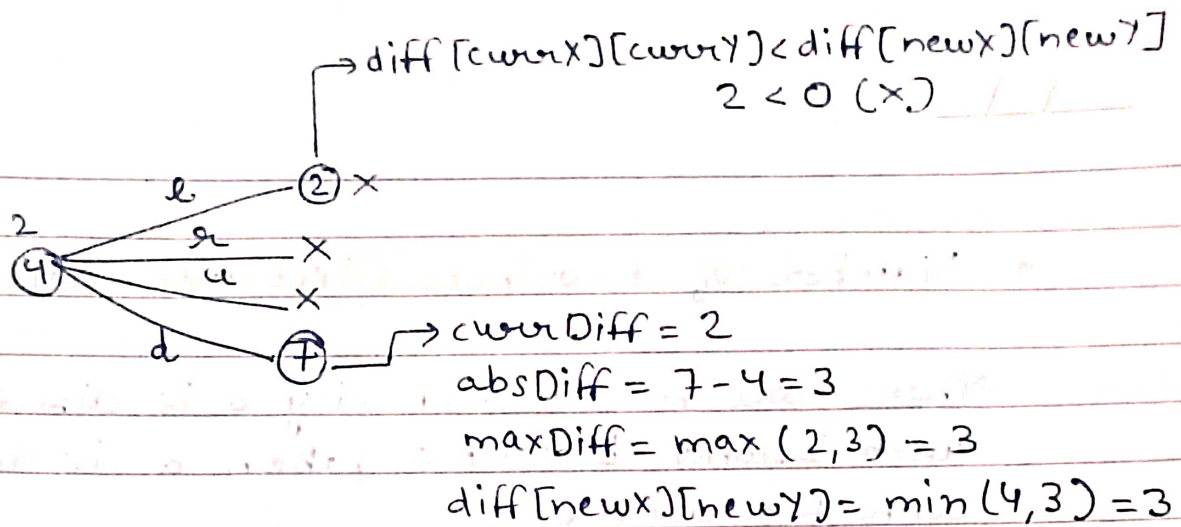 → diff[currX][currY] < diff[newX][newY]
2 < 0 (×)
l ② ×
2
r ×
④
u ×
d ⑦ → currDiff = 2
absDiff = 7 - 4 = 3
maxDiff = max (2,3) = 3
diff[newX][newY] = min(4,3) = 3